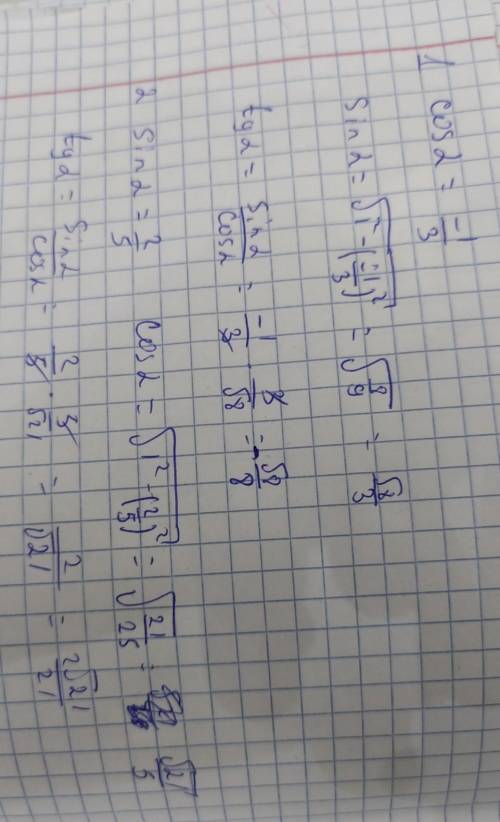 1 cos α = -1/3
sin α = √(1² - (-1/3)²) = √(8/9) = √8/3
tg α = sin α / cos α = -1/3 · 3/√8 = -√8/8
2 sin α = 2/5   cos α = √(1² - (2/5)²) = √(21/25) = √21/5
tg α = sin α / cos α = 2/5 · 5/√21 = 2/√21 = 2√21/21